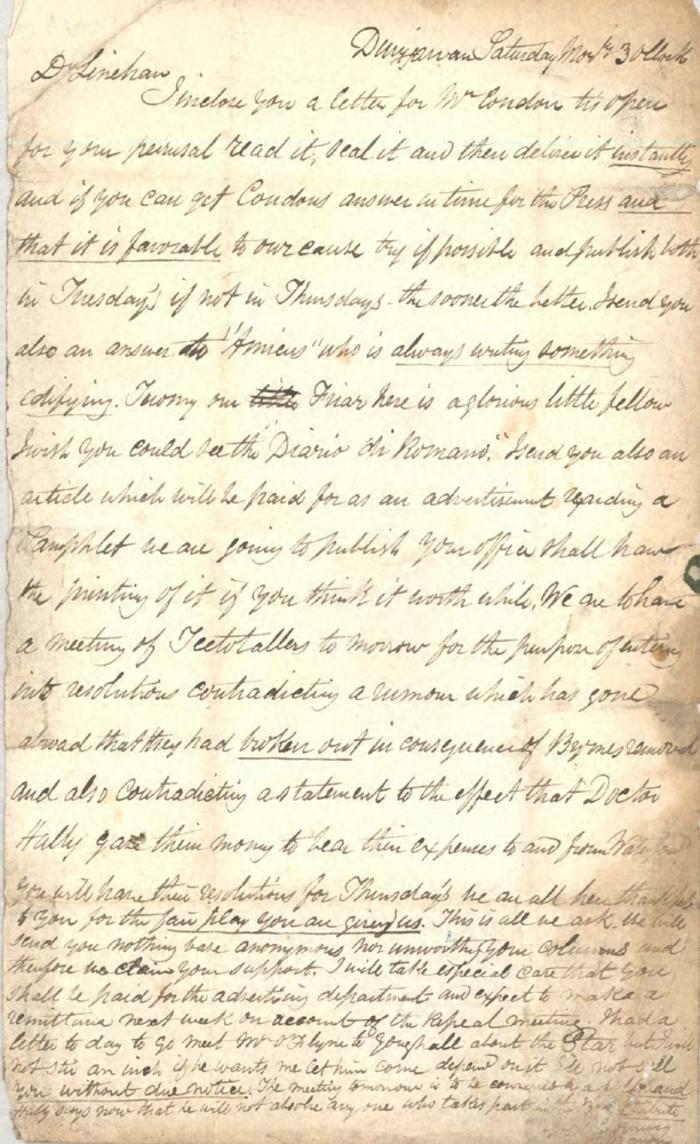 Dungarvan Saturday Novr 3 OClock
Dr Linehan
I inclose you a letter for Mr Condon tis open
for your perusal read it, seal it and then deliver it instantly
and if you can get Condons answer in time for the Press and
that it is favorable to our cause try if possible and publish both
in Tuesday's if not in Thursdays - the sooner the better. I send you
also an answer to "Amicus" who is always writing something
edifying. Twomy our Friar here is a glorious little fellow
I wish you could see the "Diario di Romano." I send you also an
article which will be paid for as an advertisment regarding a
Pamphlet we are going to publish your office shall have
the printing of it if you think it worth while. We are to have
a meeting of Teetotallers to morrow for the purpose of entering
into resolutions contradicting a rumour which has gone
abroad that they had broken out in consequence of Byrnes removal
and also contradicting a statement to the effect that Doctor
Hally gave them money to bear their expenses to and from Waterford
You will have their resolutions for Thursday's we are all here thankful
to you for the fair play you are giving us. This is all we ask. We will
send you nothing base anonymous nor unworthy your columns and
therefore we claim your support. I will take especial care that you
shall be paid for the advertising department and expect to make a
remittance next week on account of the Repeal meeting. I had a
letter to day to go meet Mr O'Flyn to Youghall about the Star but I will
not stir an inch if he wants me let him come depend on it I'll not sell
you without due notice. The meeting tomorrow is to be
Hally says now that he will not absolve any one who takes part in the Tribute